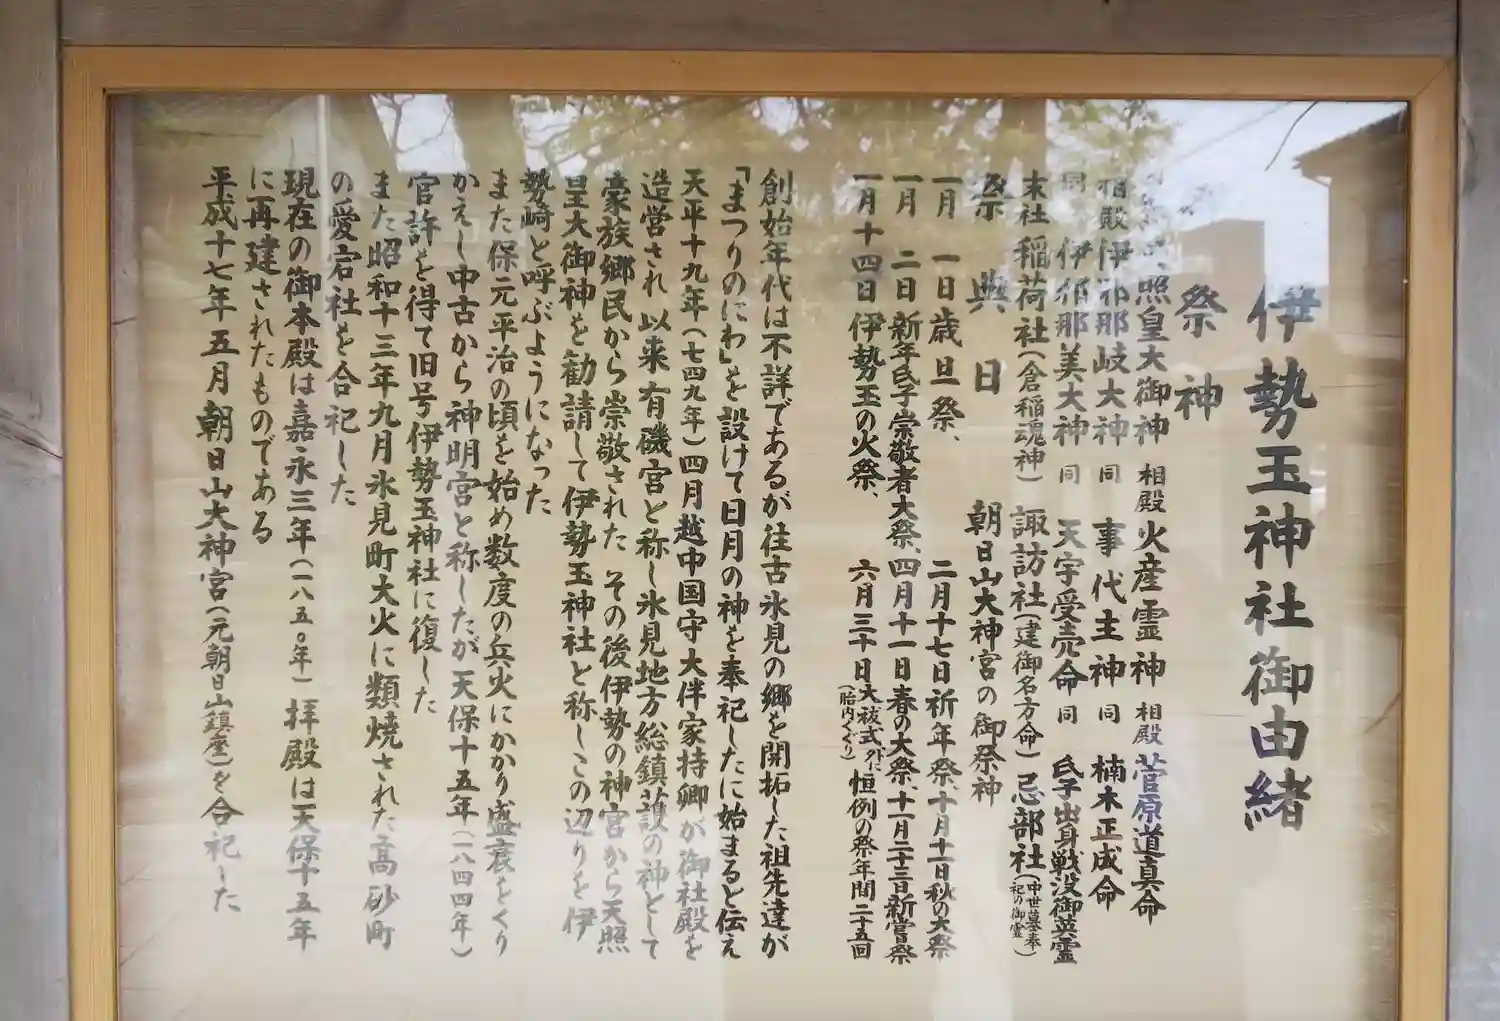 伊勢玉神社御由緒
祭神
照皇大御神 相殿 火産霊神 相殿 菅原道真命
相殿 伊邪那岐大神 同 事代主神 同 楠木正成命
同 伊邪那美大神 同 天宇受売命 同 氏子出身戦没御英霊
末社 稲荷社(倉稲魂神) 諏訪社(建御名方命) 忌部社(中世墓奉祀の御霊)
祭典日 朝日山大神宮の御祭神
一月一日歳旦祭、二月十七日祈年祭、十月十一日秋の大祭
一月二日新年氏子崇敬者大祭、四月十一日春の大祭、十一月二十三日新嘗祭
一月十四日伊勢玉の火祭、六月三十日大祓式(胎内くぐり)外に恒例の祭年間二十五回
創始年代は不詳であるが往古氷見の郷を開拓した祖先達が
「まつりのにわ」を設けて日月の神を奉祀したに始まると伝え
天平十九年(七四九年)四月越中国守大伴家持卿が御社殿を
造営され以来有磯宮と称し氷見地方総鎮護の神として
豪族郷民から崇敬された その後伊勢の神宮から天照
皇大御神を勧請して伊勢玉神社と称しこの辺りを伊
勢崎と呼ぶようになった
また保元平治の頃を始め数度の兵火にかかり盛衰をくり
かえし中古から神明宮と称したが天保十五年(一八四四年)
官許を得て旧号伊勢玉神社に復した
また昭和十三年九月氷見町大火に類焼された高砂町
の愛宕社を合祀した
現在の御本殿は嘉永三年(一八五〇年)拝殿は天保十五年
に再建されたものである
平成十七年五月朝日山大神宮(元朝日山鎮座)を合祀した